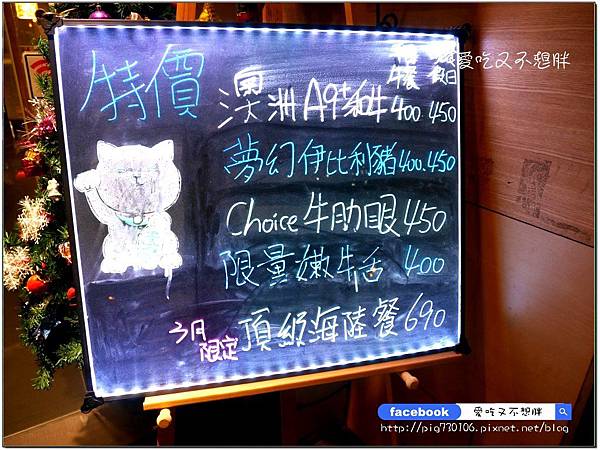 愛吃又不想胖
特價
澳洲A9+和牛 400 450
夢幻伊比利豬 400.450
Choice 牛肋眼 450
限量嫩牛舌 400
3月
限定 頂級海陸餐 690
facebook 愛吃又不想胖
http://pig730106.pixnet.net/blog